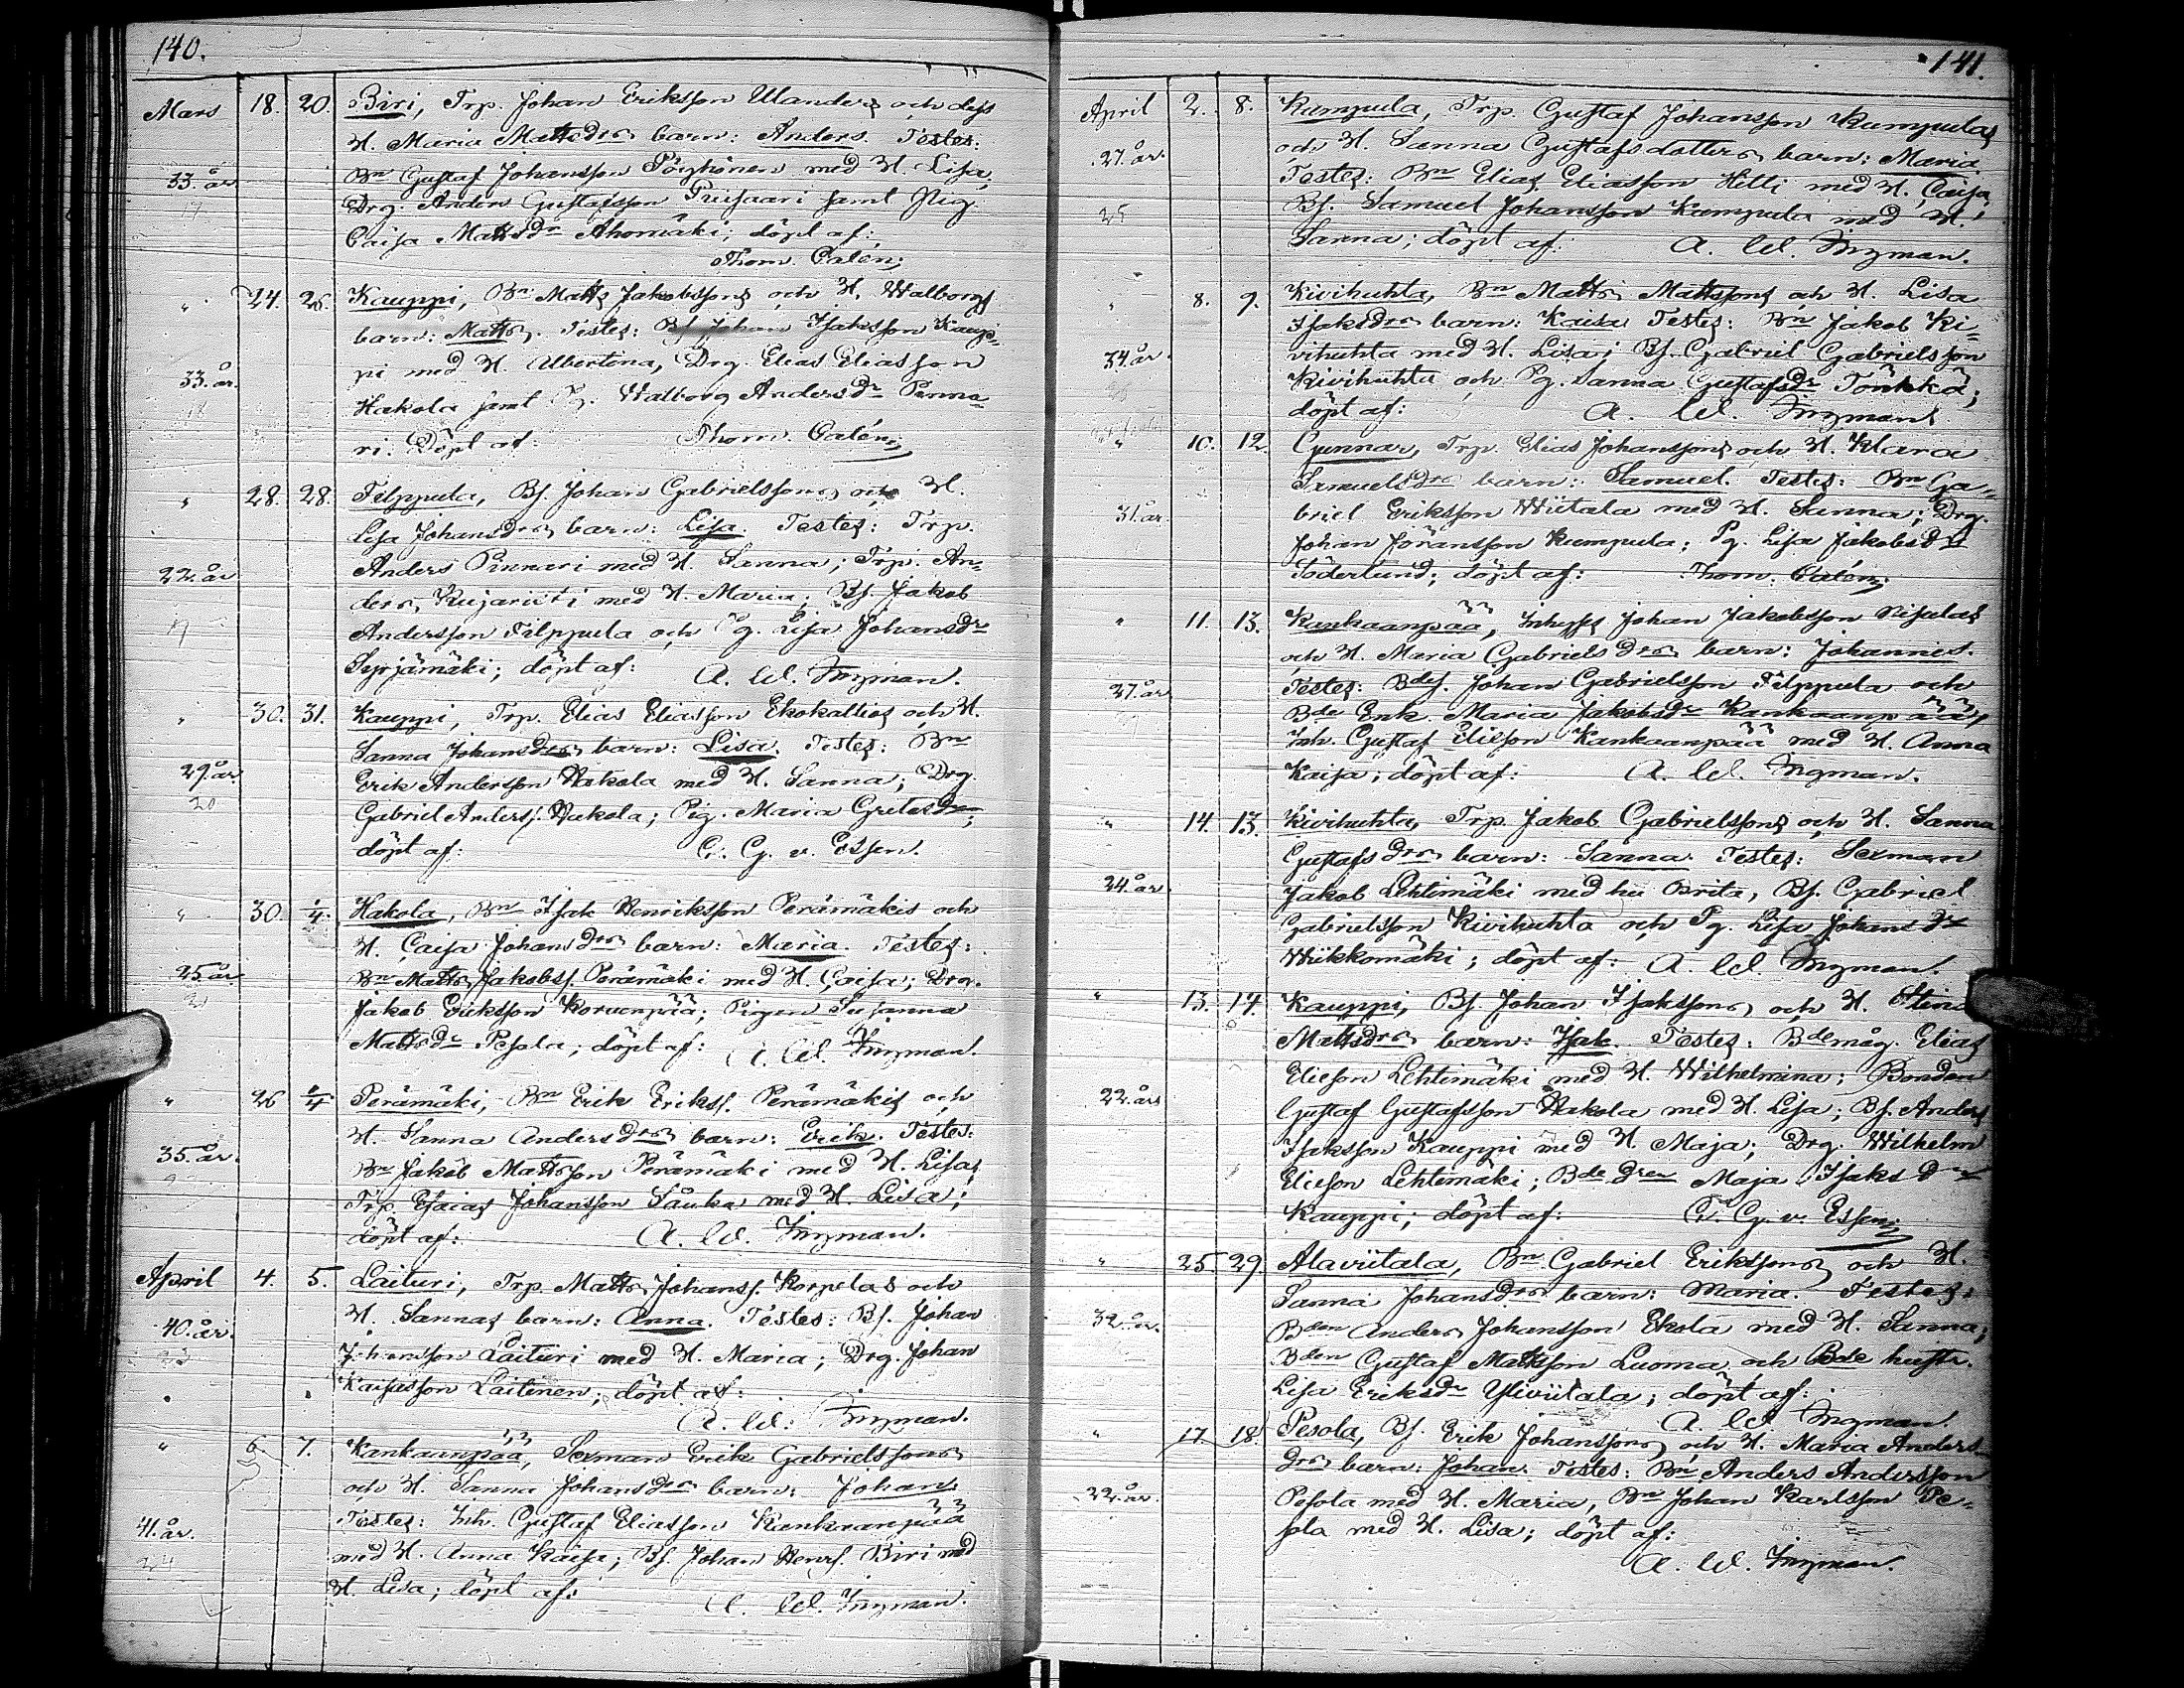 140.
Mars 18. 20. Biri, Trp. Johan Eriksson Ulanders och dess
H. Maria Mattsdrs barn: Anders. Testes:
33. år Bn Gustaf Johansson Pöyhönen med H. Lisa,
Drg. Anders Gustafsson Puisaari samt Pig.
Caisa Mattsdr Ahomäki; döpt af:
Thom. Calén;
" 24. 26. Kauppi, Bn Matts Jakobssons och H. Walborgs
barn: Matts. Testes: Bs Johan Isaksson Kaup-
33. år. pi med H. Albertina, Drg. Elias Eliasson
Hakola samt P. Walborg Andersdr Penna-
ri. Döpt af: Thom. Calén;
" 28. 28. Filppula, Bs. Johan Gabrielssons och H.
Lisa Johansdrs barn: Lisa. Testes: Trp.
22. år Anders Pinnari med H. Sanna; Trp. An-
ders Kujariiti med H. Maria; Bs. Jakob
Andersson Filppula och Pg. Lisa Johansdr
Syrjämäki; döpt af: A. W. Ingman.
" 30. 31. Kauppi, Trp. Elias Eliasson Ekokallios och H.
Sanna Johansdrs barn: Lisa. Testes: Bn
29. år. Erik Andersson Hakola med H. Sanna; Drg.
20 Gabriel Anderss. Hakola; Pig. Maria Gretasdr;
döpt af: C. G. v. Essen.
" 30. 1/4. Hakola, Bn Isak Henriksson Perämäkis och
H. Caisa Johansdrs barn: Maria. Testes:
25 år Bn Matts Jakobss. Perämäki med H. Caisa; Drg.
Jakob Eriksson Korvenpää; Pigen Susanna
Mattsdr Pesola; döpt af: A. W. Ingman.
" 26 1/4 Perämäki, Bn Erik Erikss. Perämäkis och
H. Sanna Andersdrs barn: Erik. Testes:
35. år. Bn Jakob Mattsson Perämäki med H. Lisa;
Trp. Esaias Johansson Sauka med H. Lisa;
döpt af: A. W. Ingman.
April 4. 5. Laituri, Trp. Matts Johanss. Korpelas och
H. Sannas barn: Anna. Testes: Bs. Johan
40. år. Johansson Laituri med H. Maria; Drg. Johan
Kaisasson Laitinen; döpt af:
A. W. Ingman.
" 6. 7. Kankaanpää, Sexman Erik Gabrielssons
och H. Sanna Johansdrs barn: Johan.
Testes: Inh. Gustaf Eliasson Kankaanpää
41. år. med H. Anna Kaisa; Bs. Johan Henrs. Biri med
H. Lisa; döpt af: A. W. Ingman.
141.
April 2. 8. Kumpula, Trp. Gustaf Johansson Kumpulas
27. år. och H. Sanna Gustafsdotters barn: Maria
Testes: Bn Elias Eliasson Hilli med H. Caisa,
25 Bs. Samuel Johansson Kumpula med H.
Sanna; döpt af: A. W. Ingman.
" 8. 9. Kivihuhta, Bn Matts Mattssons och H. Lisa
Isaksdrs barn: Kaisa Testes: Bn Jakob Ki-
34. år. vihuhta med H. Lisa; Bs. Gabriel Gabrielsson
Kivihuhta och Pg. Sanna Gustafsdr Tönkkä;
döpt af: A. W. Ingman.
" 10. 12. Gunnar, Trp. Elias Johanssons och H. Klara
Samuelsdrs barn: Samuel. Testes: Bn Ga-
31. år. briel Eriksson Wiitala med H. Sanna; Drg.
Johan Jöransson Kumpula; Pg. Lisa Jakobsdr
Söderlund; döpt af: Thom. Calén;
" 11. 13. Kankaanpää, Inhyss Johan Jakobsson Nisulas
och H. Maria Gabrielsdrs barn: Johannes.
27. år Testes: Bdes. Johan Gabrielsson Filppula och
Bde Enk. Maria Jakobsdr Kankaanpää,
Inh. Gustaf Elisson Kankaanpää med H. Anna
Kaisa; döpt af: A. W. Ingman.
" 14. 13. Kivihuhta, Trp. Jakob Gabrielssons och H. Sanna
Gustafsdrs barn: Sanna. Testes: Sexman
24. år Jakob Lehtimäki med hu Brita, Bs. Gabriel
Gabrielsson Kivihuhta och Pg. Lisa Johansdr
Wiikkomäki; döpt af: A. W. Ingman.
" 13. 14. Kauppi, Bs. Johan Isakssons och H. Stina
Mattsdrs barn: Isak. Testes: Bdemåg. Elias
22. år Elieson Lehtimäki med H. Wilhelmina; Bonden
Gustaf Gustafsson Hakola med H. Lisa; Bs. Anders
Isaksson Kauppi med H. Maja; Drg. Wilhelm
Elieson Lehtimäki; Bde Dren Maja Isaksdr
Kauppi; döpt af: C. G. v. Essen;
" 25. 29. Alaviitala, Bn Gabriel Erikssons och H.
Sanna Johansdrs barn: Maria. Testes:
32. år. Bden Anders Johansson Ekola med H. Sanna;
Bden Gustaf Mattsson Luoma och Bde hustr.
Lisa Eriksdr Yliviitala; döpt af:
A. W. Ingman.
" 17. 18. Pesola, Bs. Erik Johanssons och H. Maria Anders-
drs barn: Johan Testes: Bn Anders Andersson
22. år. Pesola med H. Maria, Bn Johan Karlsson Pe-
sola med H. Lisa; döpt af:
A. W. Ingman.